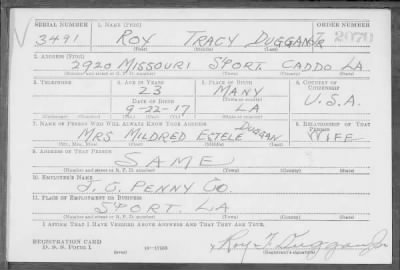 SERIAL NUMBER 1. NAME (Print) ORDER NUMBER
3491 ROY TRACY DUGGAN JR V 2070
(First) (Middle) (Last)
2. ADDRESS (Print)
2920 MISSOURI S'PORT CADDO LA.
(Number and street or R. F. D. number) (Town) (County) (State)
3. TELEPHONE 4. AGE IN YEARS 5. PLACE OF BIRTH 6. COUNTRY OF CITIZENSHIP
23 MANY
DATE OF BIRTH (Town or county)
9-22-17 LA U.S.A.
(Exchange) (Number) (Mo.) (Day) (Yr.) (State or country)
7. NAME OF PERSON WHO WILL ALWAYS KNOW YOUR ADDRESS 8. RELATIONSHIP OF THAT PERSON
MRS MILDRED ESTELE DUGGAN WIFE
(Mr., Mrs., Miss) (First) (Middle) (Last)
9. ADDRESS OF THAT PERSON
SAME
(Number and street or R. F. D. number) (Town) (County) (State)
10. EMPLOYER'S NAME
J. C. PENNY CO.
11. PLACE OF EMPLOYMENT OR BUSINESS
S'PORT. LA
(Number and street or R. F. D. number) (Town) (County) (State)
I AFFIRM THAT I HAVE VERIFIED ABOVE ANSWERS AND THAT THEY ARE TRUE.
REGISTRATION CARD
D. S. S. Form 1 (over) 16-17105 Roy T. Duggan Jr.
(Registrant's signature)